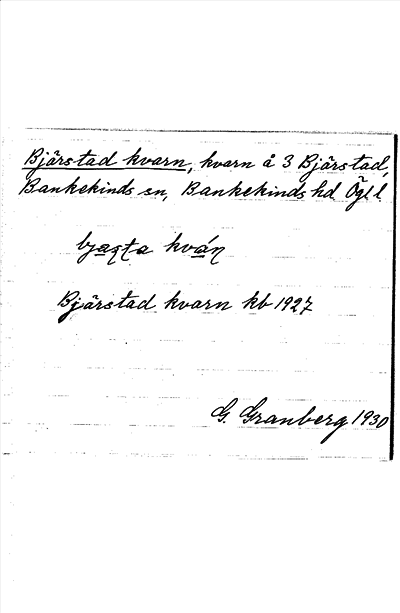 Bjärstad kvarn, kvarn å 3 Bjärstad,
Bankekinds sn, Bankekinds hd Ögl l
kvarn
Bjärstad kvarn kb 1927
G. Granberg 1930